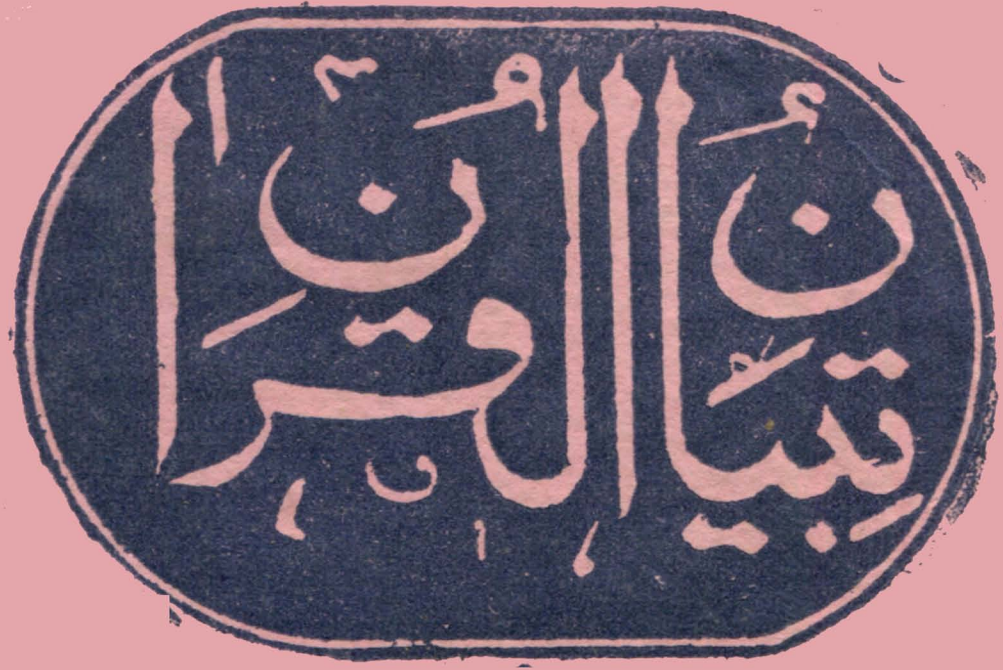 تِبْيَانُ الْقُرْاٰنِ